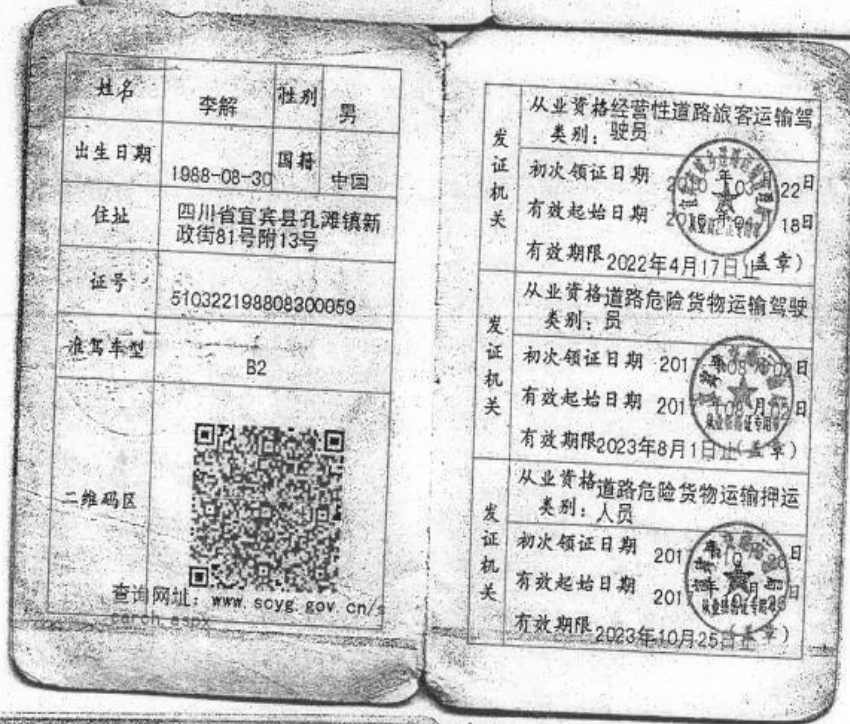 姓名 李解 性别 男
出生日期 1988-08-30 国籍 中国
住址 四川省宜宾县孔滩镇新
政街81号附13号
证号 510322198808300059
准驾车型 B2
二维码区
查询网址: www.scyg.gov.cn/s
earch.aspx
发证机关
从业资格经营性道路旅客运输驾
类别: 驶员
初次领证日期 22日
有效起始日期 18日
有效期限2022年4月17日止(盖章)
发证机关
从业资格道路危险货物运输驾驶
类别: 员
初次领证日期 2017年08月02日
有效起始日期 2017年08月02日
有效期限2023年8月1日止(盖章)
从业资格证专用章
发证机关
从业资格道路危险货物运输押运
类别: 人员
初次领证日期 日
有效起始日期 日
有效期限2023年10月25日止(盖章)
从业资格证专用章